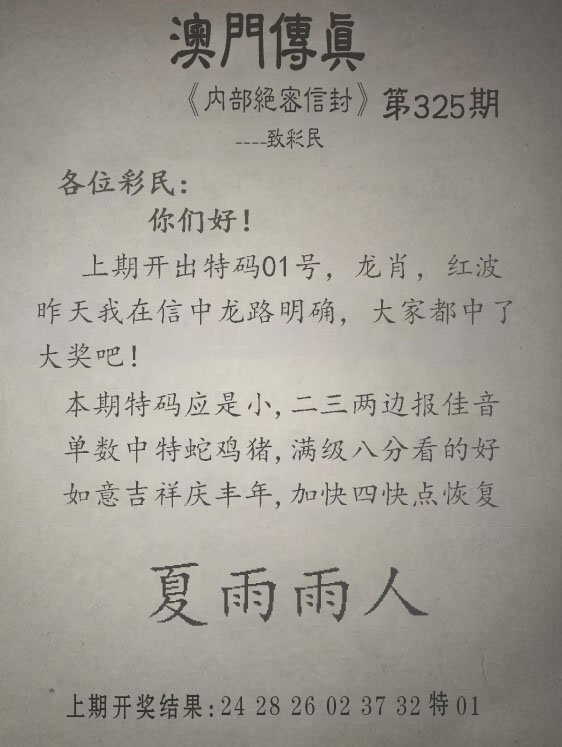 澳門傳眞
《内部絕密信封》第325期
----致彩民
各位彩民:
你们好!
上期开出特码01号，龙肖，红波
昨天我在信中龙路明确，大家都中了
大奖吧!
本期特码应是小,二三两边报佳音
单数中特蛇鸡猪,满级八分看的好
如意吉祥庆丰年,加快四快点恢复
夏雨雨人
上期开奖结果:24 28 26 02 37 32 特 01